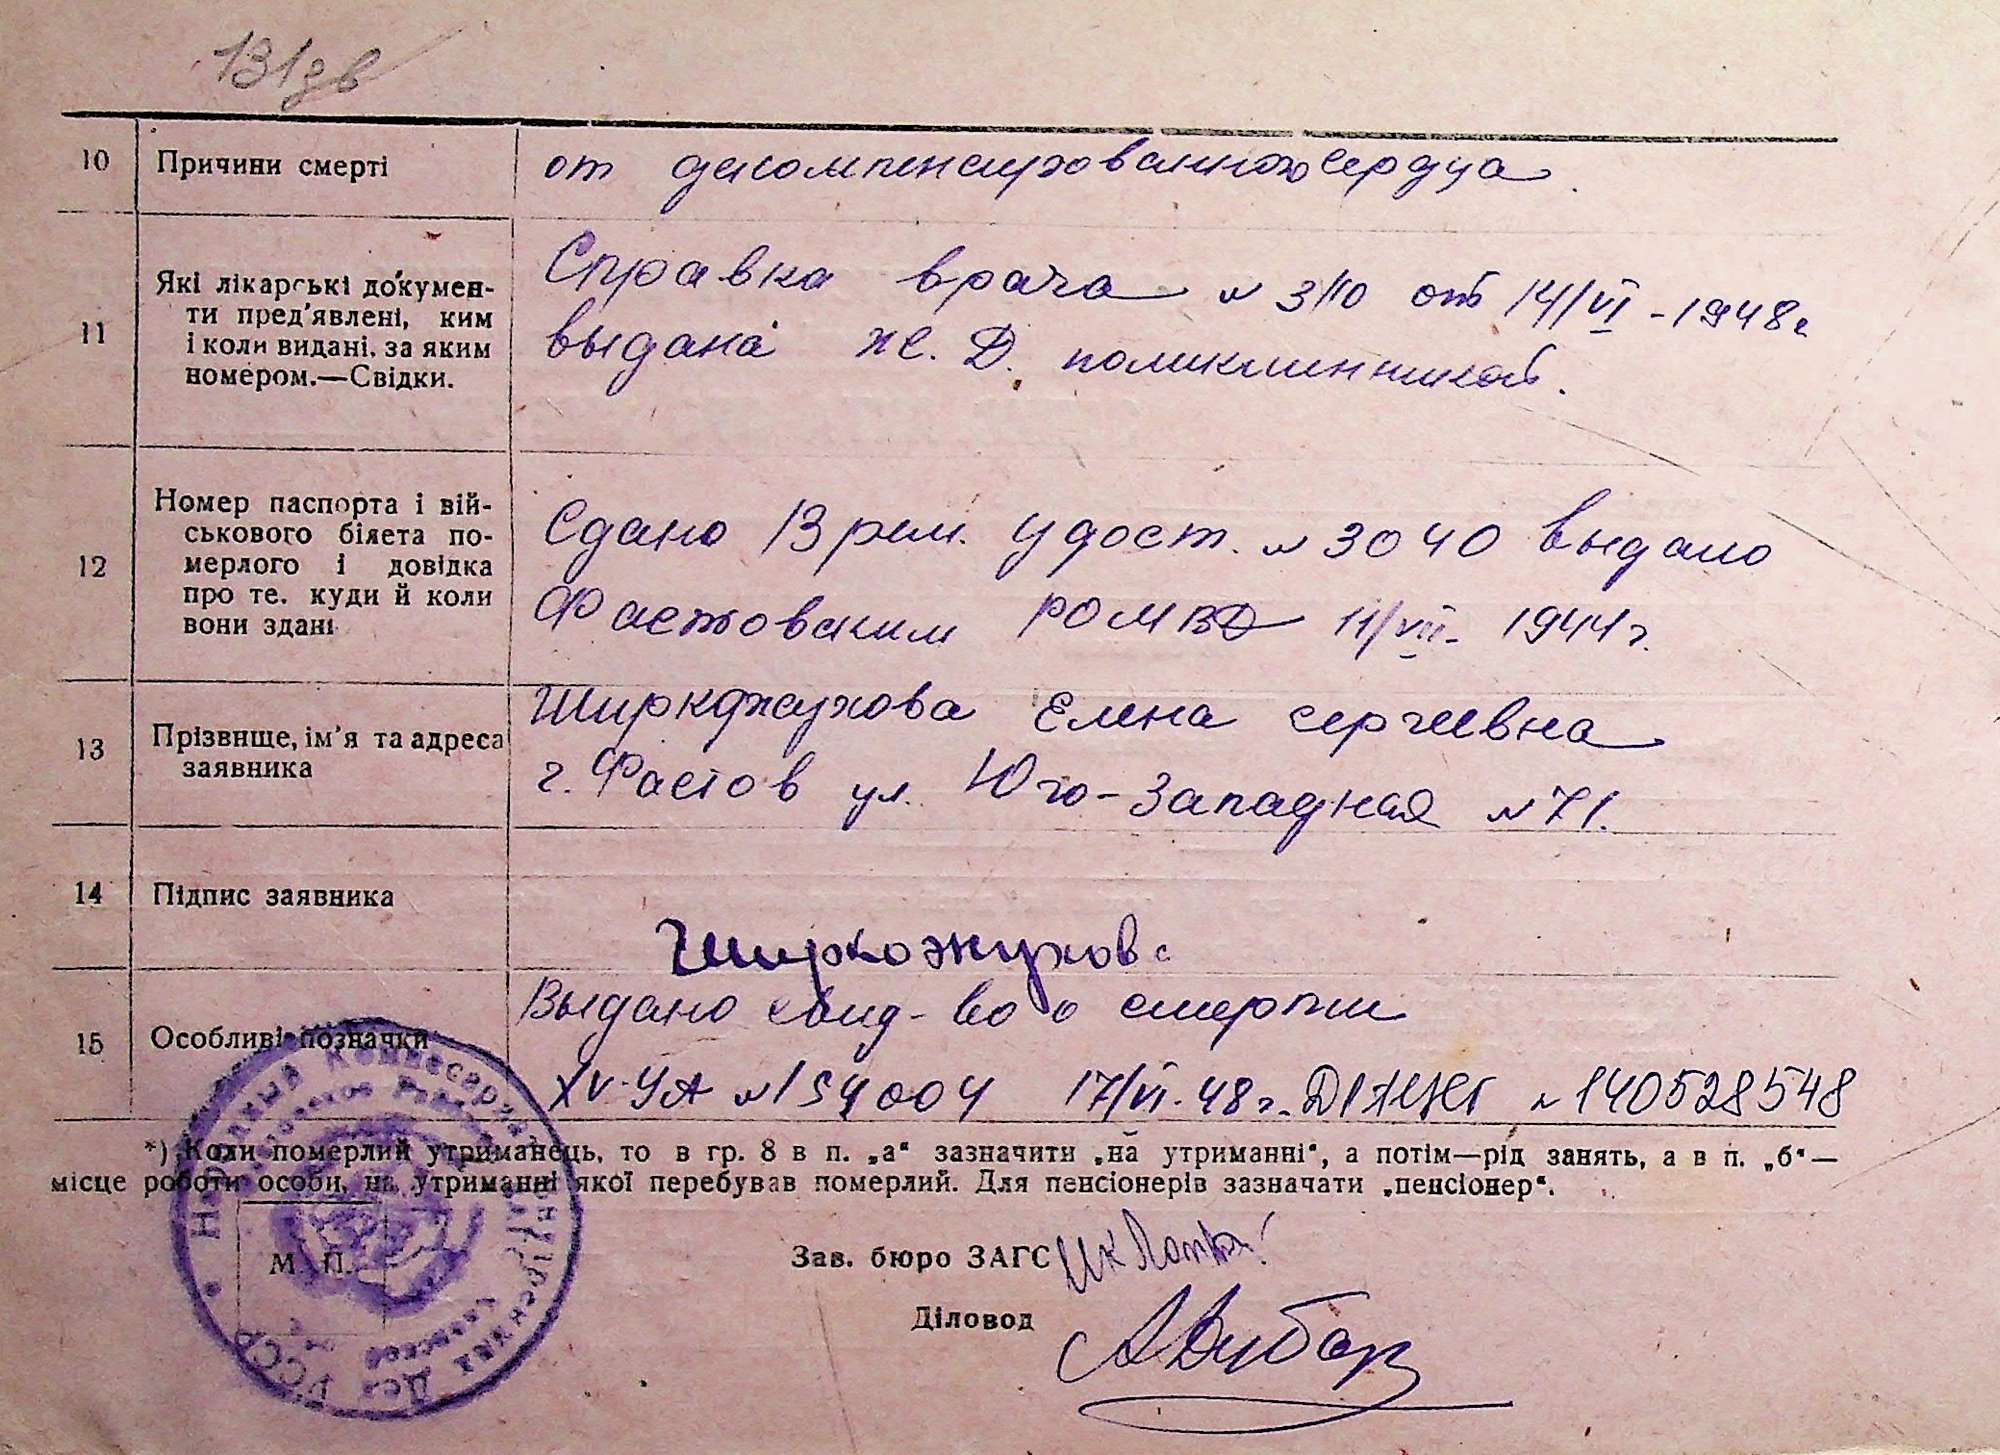 10 Причини смерті от декомпенсированного сердца.
11 Які лікарські докумен-
ти пред'явлені, ким
і коли видані, за яким
номером.—Свідки.
Справка врача № 310 от 14/VI - 1948 г
выдана ж. Д. поликлинникой.
12 Номер паспорта і вій-
ськового білета по-
мерлого і довідка
про те, куди й коли
вони здані
Сдано Врем. удост. № 3040 выдано
Фастовским РОМВД 11/VII - 1944 г.
13 Прізвище, ім'я та адреса
заявника
Елена Сергеевна
г. Фастов ул. Юго-Западная № 71.
14 Підпис заявника
15 Особливі позначки
Выдано свид-во о смерти
XV-УА № 154004 17/VI-48 г. № 140528548
*) Коли померлий утриманець, то в гр. 8 в п. „а“ зазначити „на утриманні“, а потім—рід занять, а в п. „б“—
місце роботи особи, на утриманні якої перебував померлий. Для пенсіонерів зазначати „пенсіонер“.
М. П.
Зав. бюро ЗАГС
Діловод
Народный Комиссариат Внутренних Дел УССР